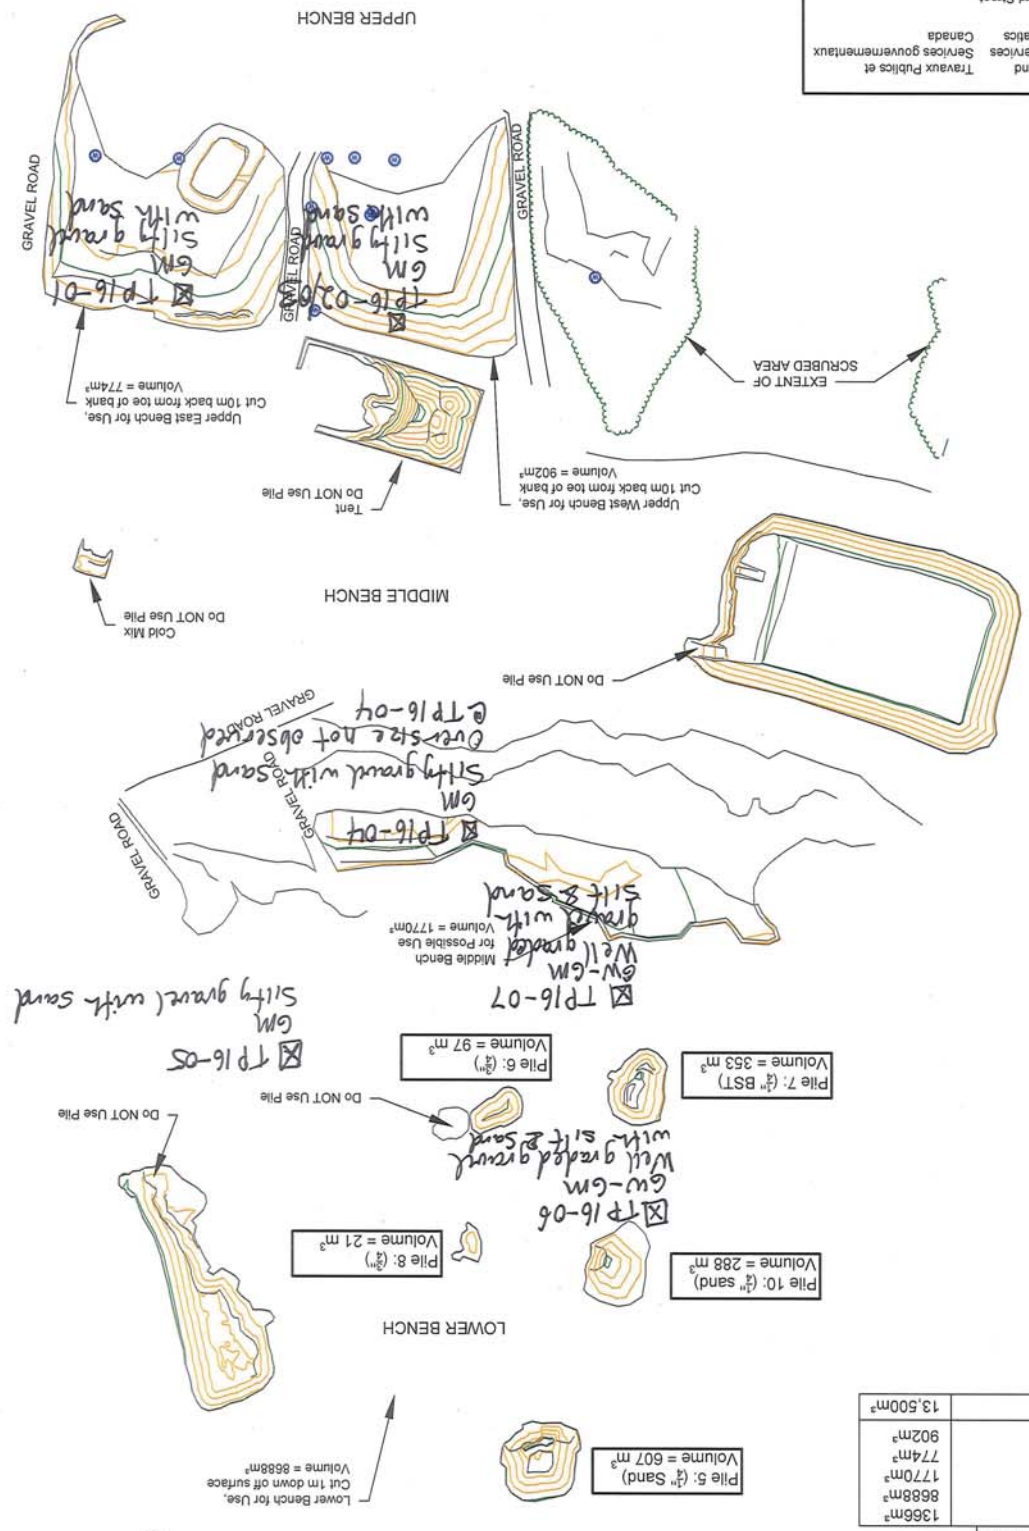 1366m³
8688m³
1770m³
774m³
902m³
13,500m³
Pile 5: (¼" Sand)
Volume = 607 m³
Lower Bench for Use,
Cut 1m down off surface
Volume = 8688m³
LOWER BENCH
Pile 10: (¼" sand)
Volume = 288 m³
Pile 8: (¾")
Volume = 21 m³
TP16-06
GW-GM
Well graded gravel
with silt & sand
Do NOT Use Pile
Do NOT Use Pile
Pile 7: (¼" BST)
Volume = 353 m³
Pile 6: (¾")
Volume = 97 m³
TP16-05
GM
Silty gravel with sand
TP16-07
GW-GM
Well graded
gravel with
silt & sand
Middle Bench
for Possible Use
Volume = 1770m³
GRAVEL ROAD
TP16-04
GM
Silty gravel with sand
Oversize not observed
@ TP16-04
GRAVEL ROAD
GRAVEL ROAD
Do NOT Use Pile
MIDDLE BENCH
Cold Mix
Do NOT Use Pile
Tent
Do NOT Use Pile
Upper West Bench for Use,
Cut 10m back from toe of bank
Volume = 902m³
Upper East Bench for Use,
Cut 10m back from toe of bank
Volume = 774m³
EXTENT OF
SCRUBED AREA
TP16-02
GM
Silty gravel
with sand
TP16-01
GM
Silty gravel
with sand
GRAVEL ROAD
GRAVEL ROAD
GRAVEL ROAD
UPPER BENCH
Travaux Publics et
Services gouvernementaux
Canada